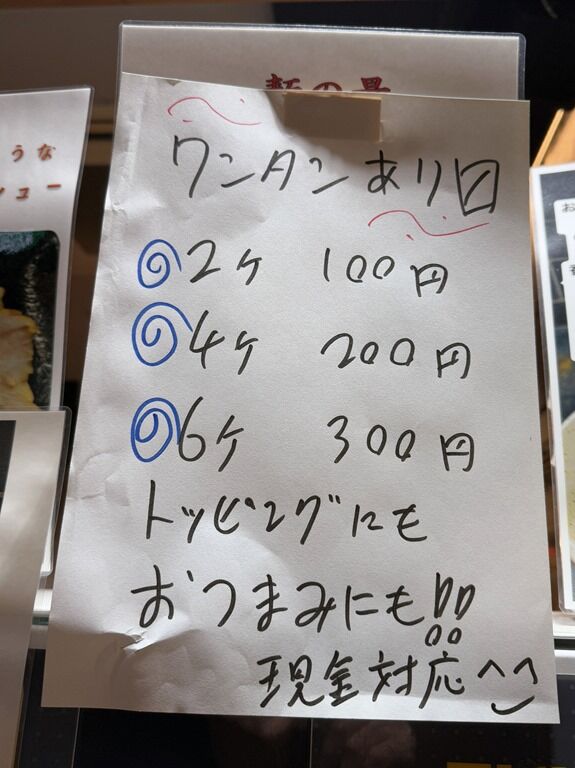 うな
ュー
軒の最
ワンタンあり〼
2ケ 100円
4ケ 200円
6ケ 300円
トッピングにも
おつまみにも!!
現金対応^^